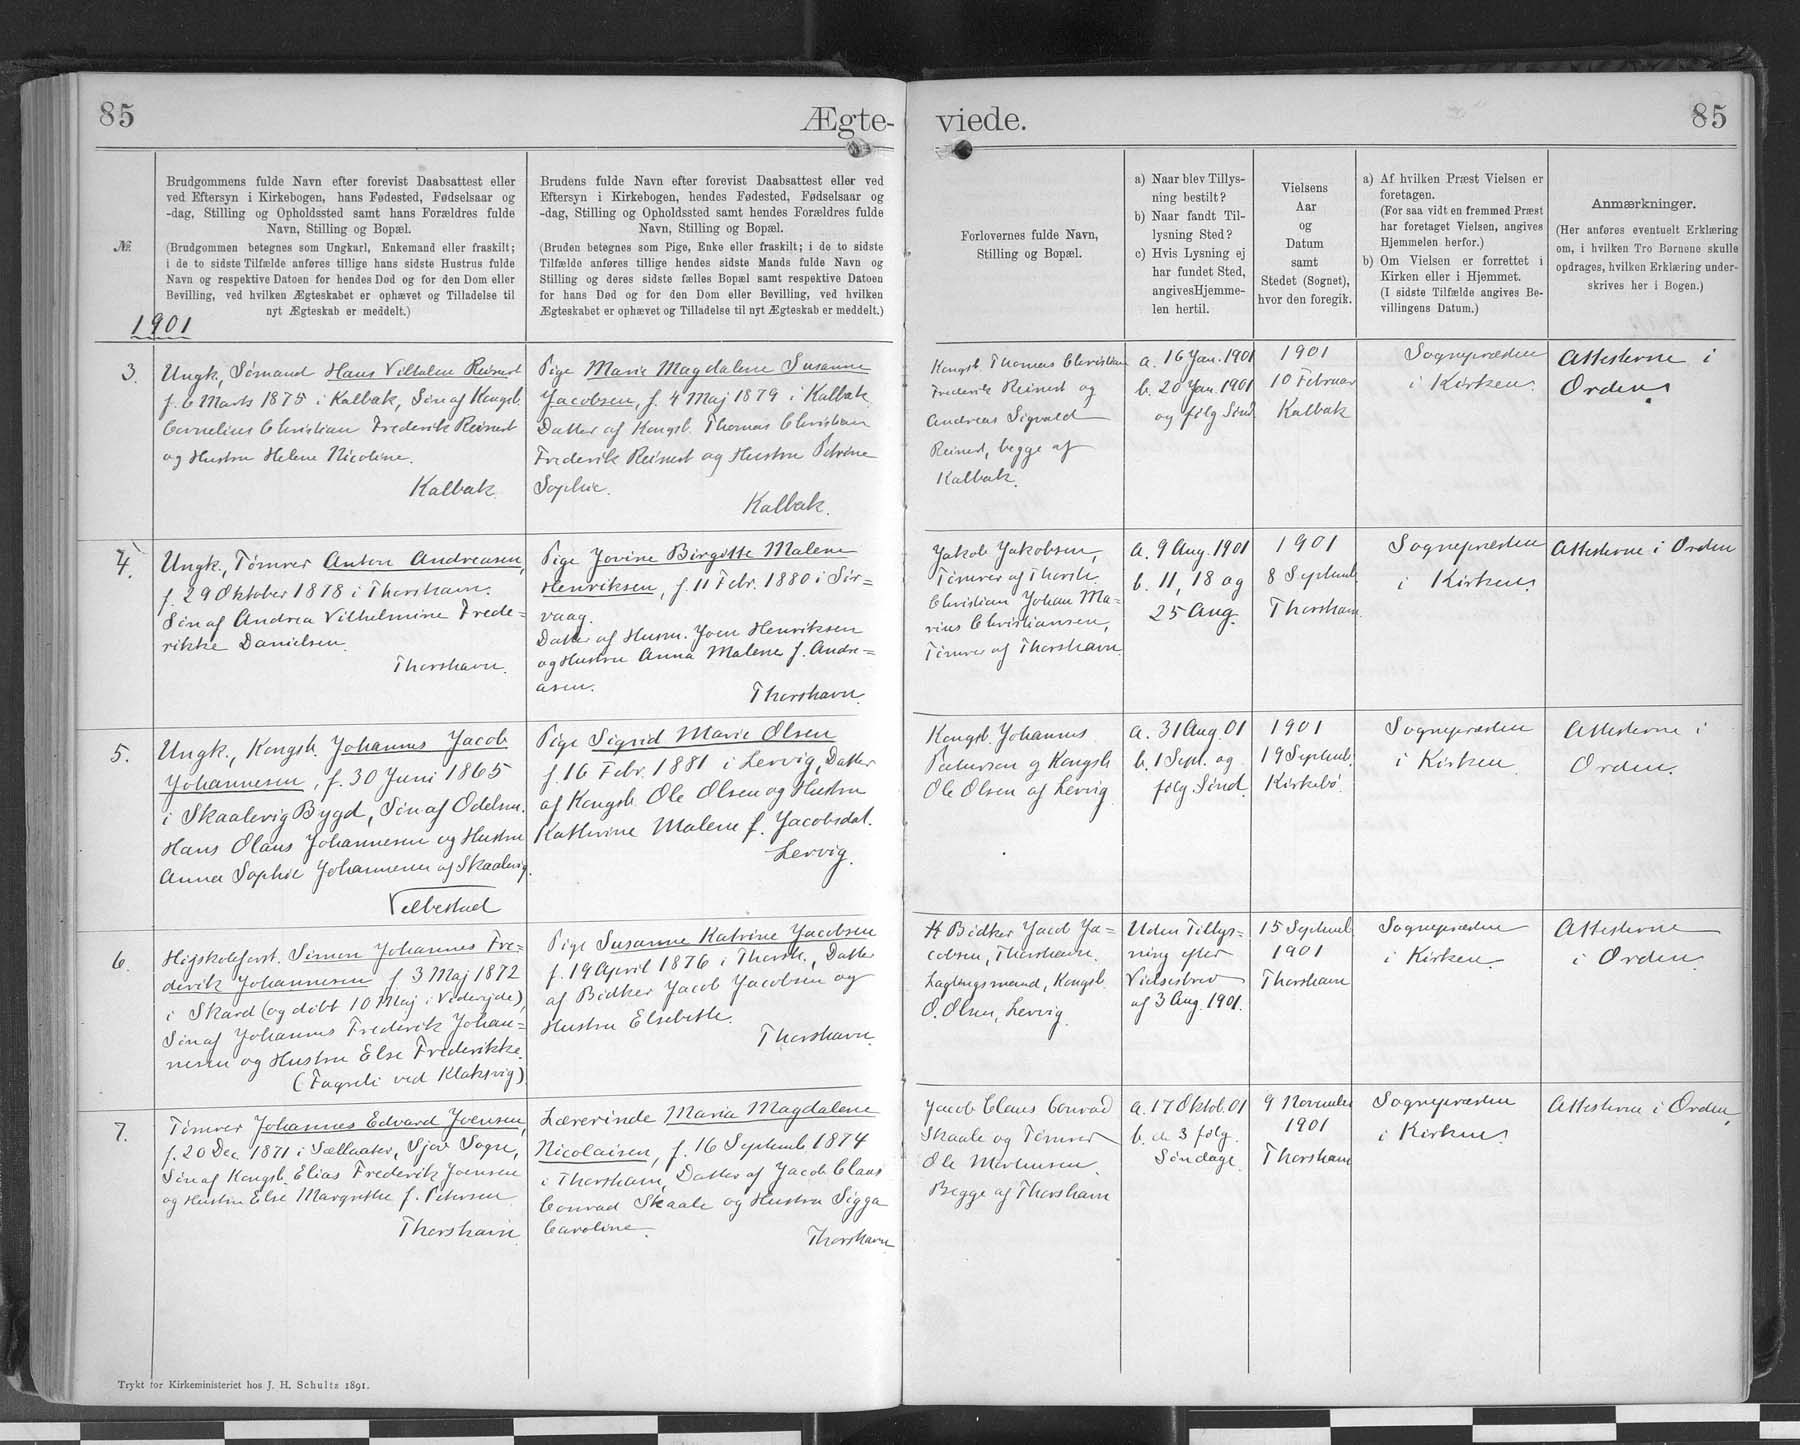 85
Ægte-
viede.
85
№
Brudgommens fulde Navn efter forevist Daabsattest eller
ved Eftersyn i Kirkebogen, hans Fødested, Fødselsaar og
-dag, Stilling og Opholdssted samt hans Forældres fulde
Navn, Stilling og Bopæl.
(Brudgommen betegnes som Ungkarl, Enkemand eller fraskilt;
i de to sidste Tilfælde anføres tillige hans sidste Hustrus fulde
Navn og respektive Datoen for hendes Død og for den Dom eller
Bevilling, ved hvilken Ægteskabet er ophævet og Tilladelse til
nyt Ægteskab er meddelt.)
Brudens fulde Navn efter forevist Daabsattest eller ved
Eftersyn i Kirkebogen, hendes Fødested, Fødselsaar og
-dag, Stilling og Opholdssted samt hendes Forældres fulde
Navn, Stilling og Bopæl.
(Bruden betegnes som Pige, Enke eller fraskilt; i de to sidste
Tilfælde anføres tillige hendes sidste Mands fulde Navn og
Stilling og deres sidste fælles Bopæl samt respektive Datoen
for hans Død og for den Dom eller Bevilling, ved hvilken
Ægteskabet er ophævet og Tilladelse til nyt Ægteskab er meddelt.)
Forlovernes fulde Navn,
Stilling og Bopæl.
a) Naar blev Tillys-
ning bestilt?
b) Naar fandt Til-
lysning Sted?
c) Hvis Lysning ej
har fundet Sted,
angives Hjemme-
len hertil.
Vielsens
Aar
og
Datum
samt
Stedet (Sognet),
hvor den foregik.
a) Af hvilken Præst Vielsen er
foretagen.
(For saa vidt en fremmed Præst
har foretaget Vielsen, angives
Hjemmelen herfor.)
b) Om Vielsen er forrettet i
Kirken eller i Hjemmet.
(I sidste Tilfælde angives Be-
villingens Datum.)
Anmærkninger.
(Her anføres eventuelt Erklæring
om, i hvilken Tro Børnene skulle
opdrages, hvilken Erklæring under-
skrives her i Bogen.)
1901
3.
Ungk, Sømand Hans Vilhelm Reinert
f. 6 Marts 1875 i Kalbak, Søn af Kongsb.
Cornelius Christian Frederik Reinert
og Hustru Helene Nicoline.
Kalbak.
Pige Marie Magdalene Susanne
Jacobsen, f. 4 Maj 1879 i Kalbak
Datter af Kongsb. Thomas Christian
Frederik Reinert og Hustru Petrine
Sophie.
Kalbak.
Kongsb. Thomas Christian
Frederik Reinert og
Andreas Sigvald
Reinert, begge af
Kalbak.
a. 16 Jan. 1901
b. 20 Jan. 1901
og følg Sønd.
1901
10 Februar
Kalbak
Sognepræsten
i Kirken.
Attesterne i
Orden.
4.
Ungk., Tømrer Anton Andreasen,
f. 29 Oktober 1878 i Thorshavn.
Søn af Andrea Vilhelmine Frede=
rikke Danielsen.
Thorshavn.
Pige Jovine Birgitte Malene
Henriksen, f. 11 Febr. 1880 i Sør=
vaag.
Datter af Husm. Joen Henriksen
og Hustru Anna Malene f. Andre=
asen.
Thorshavn.
Jakob Jakobsen,
Tømrer af Thorsh.
Christian Johan Ma=
rius Christiansen,
Tømrer af Thorshavn.
a. 9 Aug. 1901
b. 11, 18 og
25 Aug.
1901
8 Septemb.
Thorshavn.
Sognepræsten
i Kirken.
Attesterne i Orden
5.
Ungk., Kongsb. Johannes Jacob
Johannesen, f. 30 Juni 1865
i Skaalevig Bygd, Søn af Odelsm.
Hans Olaus Johannesen og Hustru
Anna Sophie Johannesen af Skaalevig.
Velbestad
Pige Sigrid Marie Olsen
f. 16 Febr. 1881 i Lervig, Datter
af Kongsb. Ole Olsen og Hustru
Kathrine Malene f. Jacobsdat.
Lervig.
Kongsb. Johannes
Petersen og Kongsb
Ole Olsen af Lervig.
a. 31 Aug. 01
b. 1 Sept. og
følg Sønd.
1901
19 Septemb.
Kirkebø.
Sognepræsten
i Kirken.
Attesterne i
Orden.
6.
Højskoleforst. Simon Johannes Fre=
derik Johannesen f. 3 Maj 1872
i Skard (og døbt 10 Maj i Viderejde)
Søn af Johannes Frederik Johan=
nesen og Hustru Else Frederikke.
(Fagreli ved Klaksvig)
Pige Susanne Katrine Jacobsen
f. 19 April 1876 i Thorsh., Datter
af Bødker Jacob Jacobsen og
Hustru Elsebeth.
Thorshavn.
Bødker Jacob Ja=
cobsen, Thorshavn.
Lagtingsmand, Kongsb.
O. Olsen, Lervig.
Uden Tillys=
ning efter
Vielsesbrev
af 3 Aug. 1901.
15 Septemb
1901
Thorshavn
Sognepræsten
i Kirken.
Attesterne
i Orden.
7.
Tømrer Johannes Edvard Joensen,
f. 20 Dec 1871 i Sællæter, Sjov Sogn,
Søn af Kongsb. Elias Frederik Joensen
og Hustru Else Margrethe f. Petersen
Thorshavn.
Lærerinde Maria Magdalene
Nicolaisen, f. 16 Septemb. 1874
i Thorshavn, Datter af Jacob Claus
Conrad Skaale og Hustru Sigga
Caroline.
Thorshavn
Jacob Claus Conrad
Skaale og Tømrer
Ole Mortensen.
Begge af Thorshavn
a. 17 Oktob. 01
b. de 3 følg.
Søndage.
9 November
1901
Thorshavn
Sognepræsten
i Kirken.
Attesterne i Orden,
Trykt for Kirkeministeriet hos J. H. Schultz 1891.